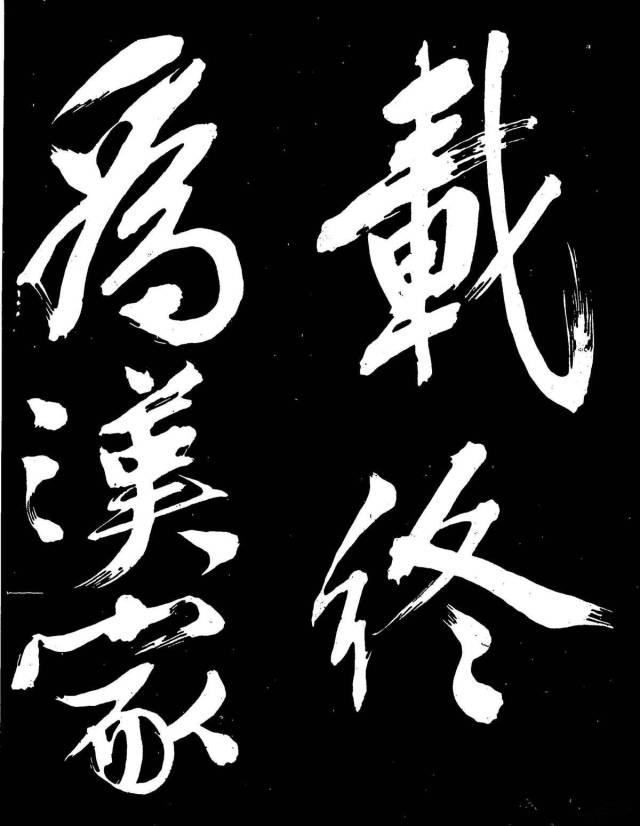 載終
為漢家